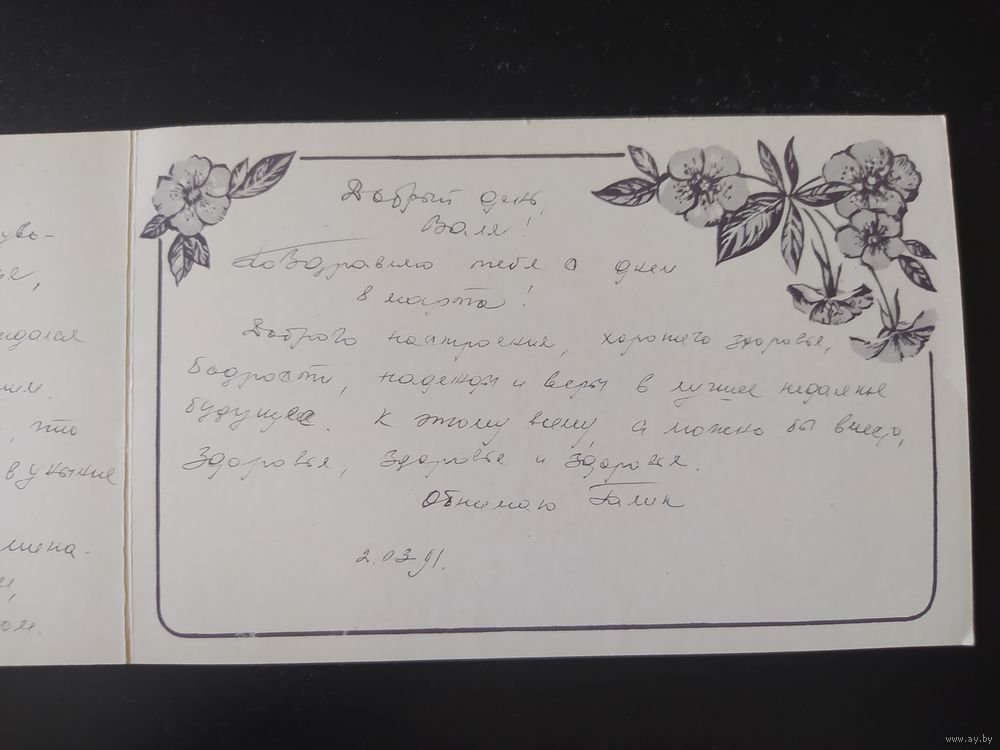 уво-
ье,
идался
ием.
, что
в уныние
мина-
и,
ом.
Добрый день,
Валя!
Поздравляю тебя с днем
8 марта!
Доброго настроения, хорошего здоровья,
бодрости, надежды и веры в лучшее недалекое
будущее. К этому всему, а можно бы вместо,
Здоровья, здоровья и здоровья.
Обнимаю Галин
2.03.91.
www.ay.by